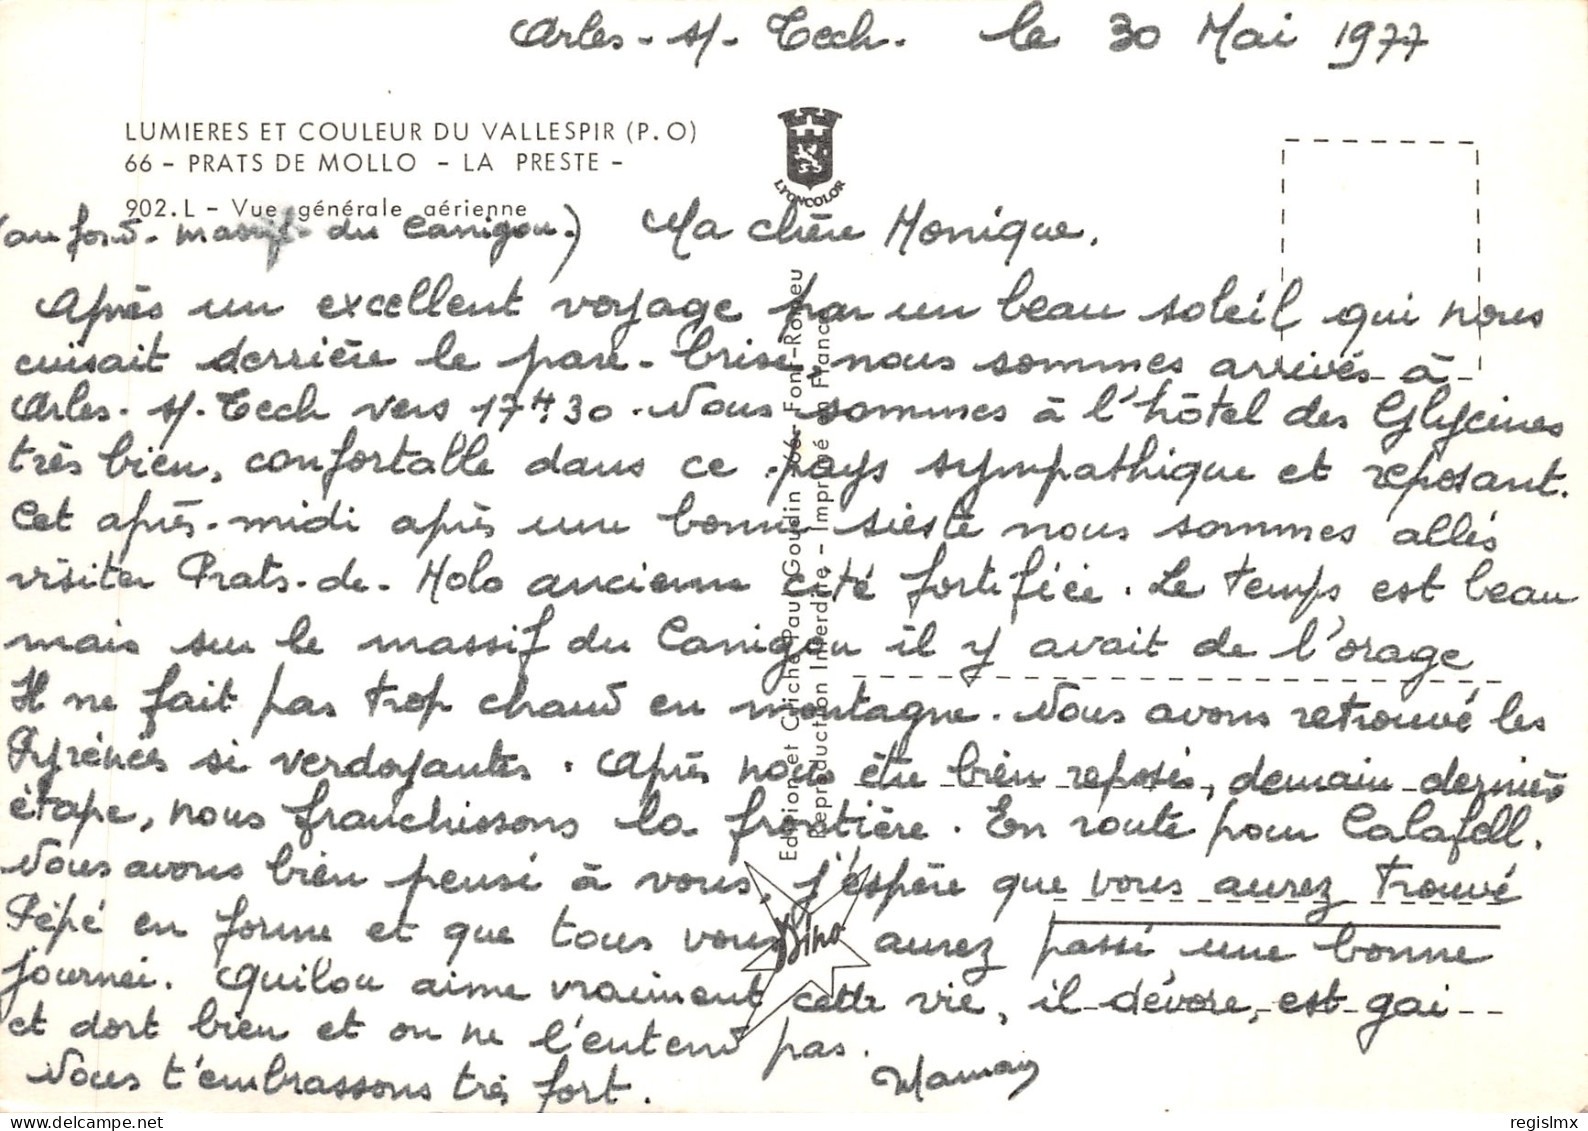 Arles - s/- Tech. le 30 Mai 1977
LUMIERES ET COULEUR DU VALLESPIR (P. O)
66 - PRATS DE MOLLO - LA PRESTE -
902. L - Vue générale aérienne
LYONCOLOR
(au fond - massif - du Canigou.) Ma chère Monique,
Après un excellent voyage par un beau soleil qui nous
cuisait derrière le pare-brise, nous sommes arrivés à
Arles - s/- Tech vers 17H30. Nous sommes à l'hôtel des Glycines
très bien, confortable dans ce pays sympathique et reposant.
Cet après-midi après une bonne sieste nous sommes allés
visiter Prats-de-Molo ancienne cité fortifiée. Le temps est beau
mais sur le massif du Canigou il y avait de l'orage
Il ne fait pas trop chaud en montagne. Nous avons retrouvé les
Pyrénées si verdoyantes. Après nous être bien reposés, demain dernière
étape, nous franchissons la frontière. En route pour Calafell.
Nous avons bien pensé à vous, j'espère que vous aurez trouvé
Pépé en forme et que tous vous aurez passé une bonne
journée. Quilou aime vraiment cette vie, il dévore, est gai
et dort bien et on ne l'entend pas.
Nous t'embrassons très fort. Maman
Edition et Cliché Paul Goudin 66 - Font-Romeu
Reproduction Interdite - Imprimé en France
Dino
regislmx
delcampe.net